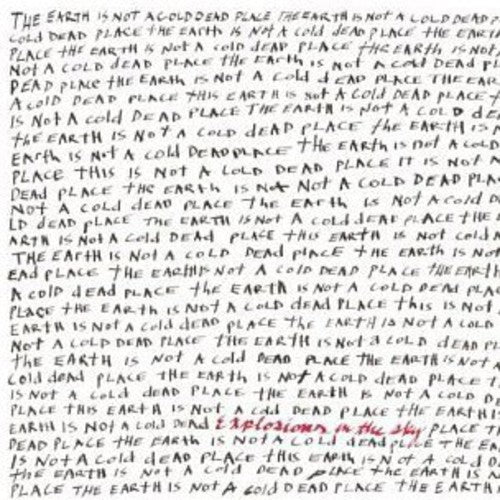 THE EARTH IS NOT A COLD DEAD PLACE THE EARTH IS NOT A COLD DEAD
COLD DEAD PLACE THE EARTH IS NOT A COLD DEAD PLACE THE EARTH
PLACE THE EARTH IS NOT A COLD DEAD PLACE THE EARTH IS NOT
NOT A COLD DEAD PLACE THE EARTH IS NOT A COLD DEAD PL
DEAD PLACE THE EARTH IS NOT A COLD DEAD PLACE THE EAR
A COLD DEAD PLACE THIS EARTH IS NOT A COLD DEAD PLACE
IS NOT A COLD DEAD PLACE THE EARTH IS NOT A COLD DE
THE EARTH IS NOT A COLD DEAD PLACE THE EARTH IS
EARTH IS NOT A COLD DEAD PLACE THE EARTH IS NOT A COLD
PLACE THIS IS NOT A COLD DEAD PLACE IT IS NOT A
DEAD PLACE THE EARTH IS NOT NOT A COLD DEAD PLA
NOT A COLD DEAD PLACE THE EARTH IS NOT A COLD D
LD DEAD PLACE THE EARTH IS NOT A COLD DEAD PLACE THE
ARTH IS NOT A COLD DEAD PLACE THIS EARTH IS NOT COLD
THE EARTH IS NOT A COLD DEAD PLACE THE EARTH IS NOT
EAD PLACE THE EARTH IS NOT A COLD DEAD PLACE THE EARTH
A COLD DEAD PLACE THE EARTH IS NOT A COLD DEAD PLAC
PLACE THE EARTH IS NOT A COLD DEAD PLACE THIS IS NOT
EARTH IS NOT A COLD DEAD PLACE THE EARTH IS NOT A COLD
NOT A COLD DEAD PLACE THE EARTH IS NOT A COLD DEAD PL
THE EARTH IS NOT A COLD DEAD PLACE THE EARTH IS NOT A
COLD DEAD PLACE THE EARTH IS NOT A COLD DEAD PLACE T
IS NOT A COLD DEAD PLACE THE EARTH IS NOT A COLD DEAD
PLACE THIS EARTH IS NOT A COLD DEAD PLACE THE EARTH
EARTH IS NOT A COLD DEAD Explosions in the sky PLACE T
DEAD PLACE THE EARTH IS NOT A COLD DEAD PLACE THE EA
IS NOT A COLD DEAD PLACE THIS EARTH IS NOT A COLD D
THE EARTH IS NOT A COLD DEAD PLACE THE EARTH IS NOT
PLACE THE EARTH IS NOT A COLD DEAD PLACE THE EARTH